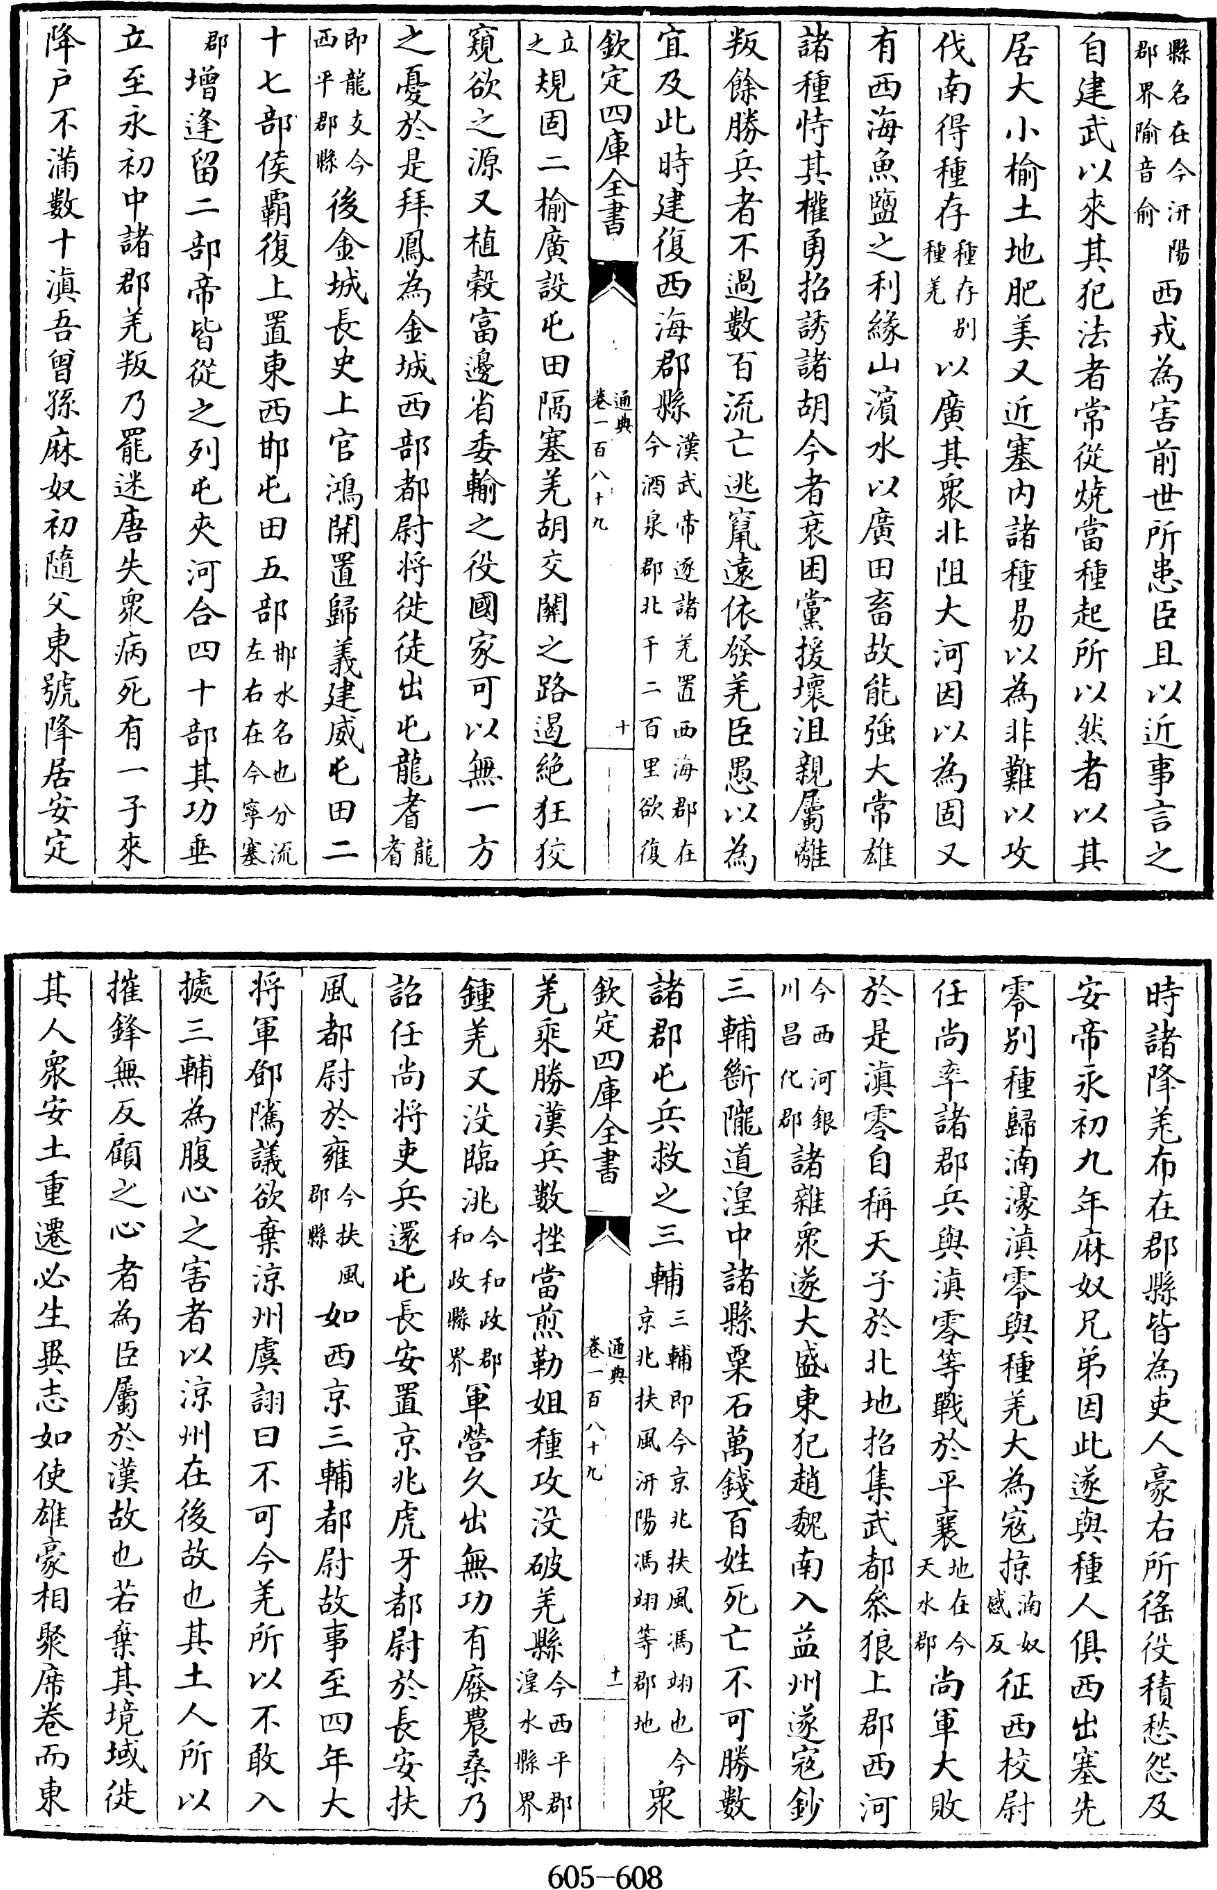 縣名在今汧陽郡界隃音俞西戎為害前世所患臣且以近事言之
自建武以來其犯法者常從燒當種起所以然者以其
居大小榆土地肥美又近塞內諸種易以為非難以攻
伐南得種存種存别種羌以廣其衆非阻大河因以為固又
有西海魚鹽之利緣山濱水以廣田畜故能強大常雄
諸種恃其權勇招誘諸胡今者衰困黨援壞沮親屬離
叛餘勝兵者不過數百流亡逃竄遠依發羌臣愚以為
宜及此時建復西海郡縣漢武帝逐諸羌置西海郡在今酒泉郡北千二百里欲復
欽定四庫全書
通典
卷一百八十九
十
立之規固二榆廣設屯田隔塞羌胡交關之路遏絶狂狡
窺欲之源又植穀富邊省委輸之役國家可以無一方
之憂於是拜鳳為金城西部都尉將徙徒出屯龍耆龍耆
即龍支今西平郡縣後金城長史上官鴻開置歸義建威屯田二
十七部侯霸復上置東西邯屯田五部邯水名也分流左右在今寧塞
郡增逢留二部帝皆從之列屯夾河合四十部其功垂
立至永初中諸郡羌叛乃罷迷唐失衆病死有一子來
降戶不滿數十滇吾曾孫麻奴初隨父東號降居安定
時諸降羌布在郡縣皆為吏人豪右所徭役積愁怨及
安帝永初九年麻奴兄弟因此遂與種人俱西出塞先
零别種歸湳濠滇零與種羌大為宼掠湳奴感反征西校尉
任尚率諸郡兵與滇零等戰於平襄地在今天水郡尚軍大敗
於是滇零自稱天子於北地招集武都叅狼上郡西河
今西河銀川昌化郡諸雜衆遂大盛東犯趙魏南入益州遂宼鈔
三輔斷隴道湟中諸縣粟石萬錢百姓死亡不可勝數
諸郡屯兵救之三輔三輔即今京兆扶風馮翊也今京兆扶風汧陽馮翊等郡地衆
欽定四庫全書
通典
卷一百八十九
十一
羌乘勝漢兵數挫當煎勒姐種攻没破羌縣今西平郡湟水縣界
鍾羌又没臨洮今和政郡和政縣界軍營久出無功有廢農桑乃
詔任尚將吏兵還屯長安置京兆虎牙都尉於長安扶
風都尉於雍今扶風郡縣如西京三輔都尉故事至四年大
將軍鄧隲議欲棄涼州虞詡曰不可今羌所以不敢入
據三輔為腹心之害者以涼州在後故也其土人所以
摧鋒無反顧之心者為臣屬於漢故也若棄其境域徙
其人衆安土重遷必生異志如使雄豪相聚席卷而東
605-608